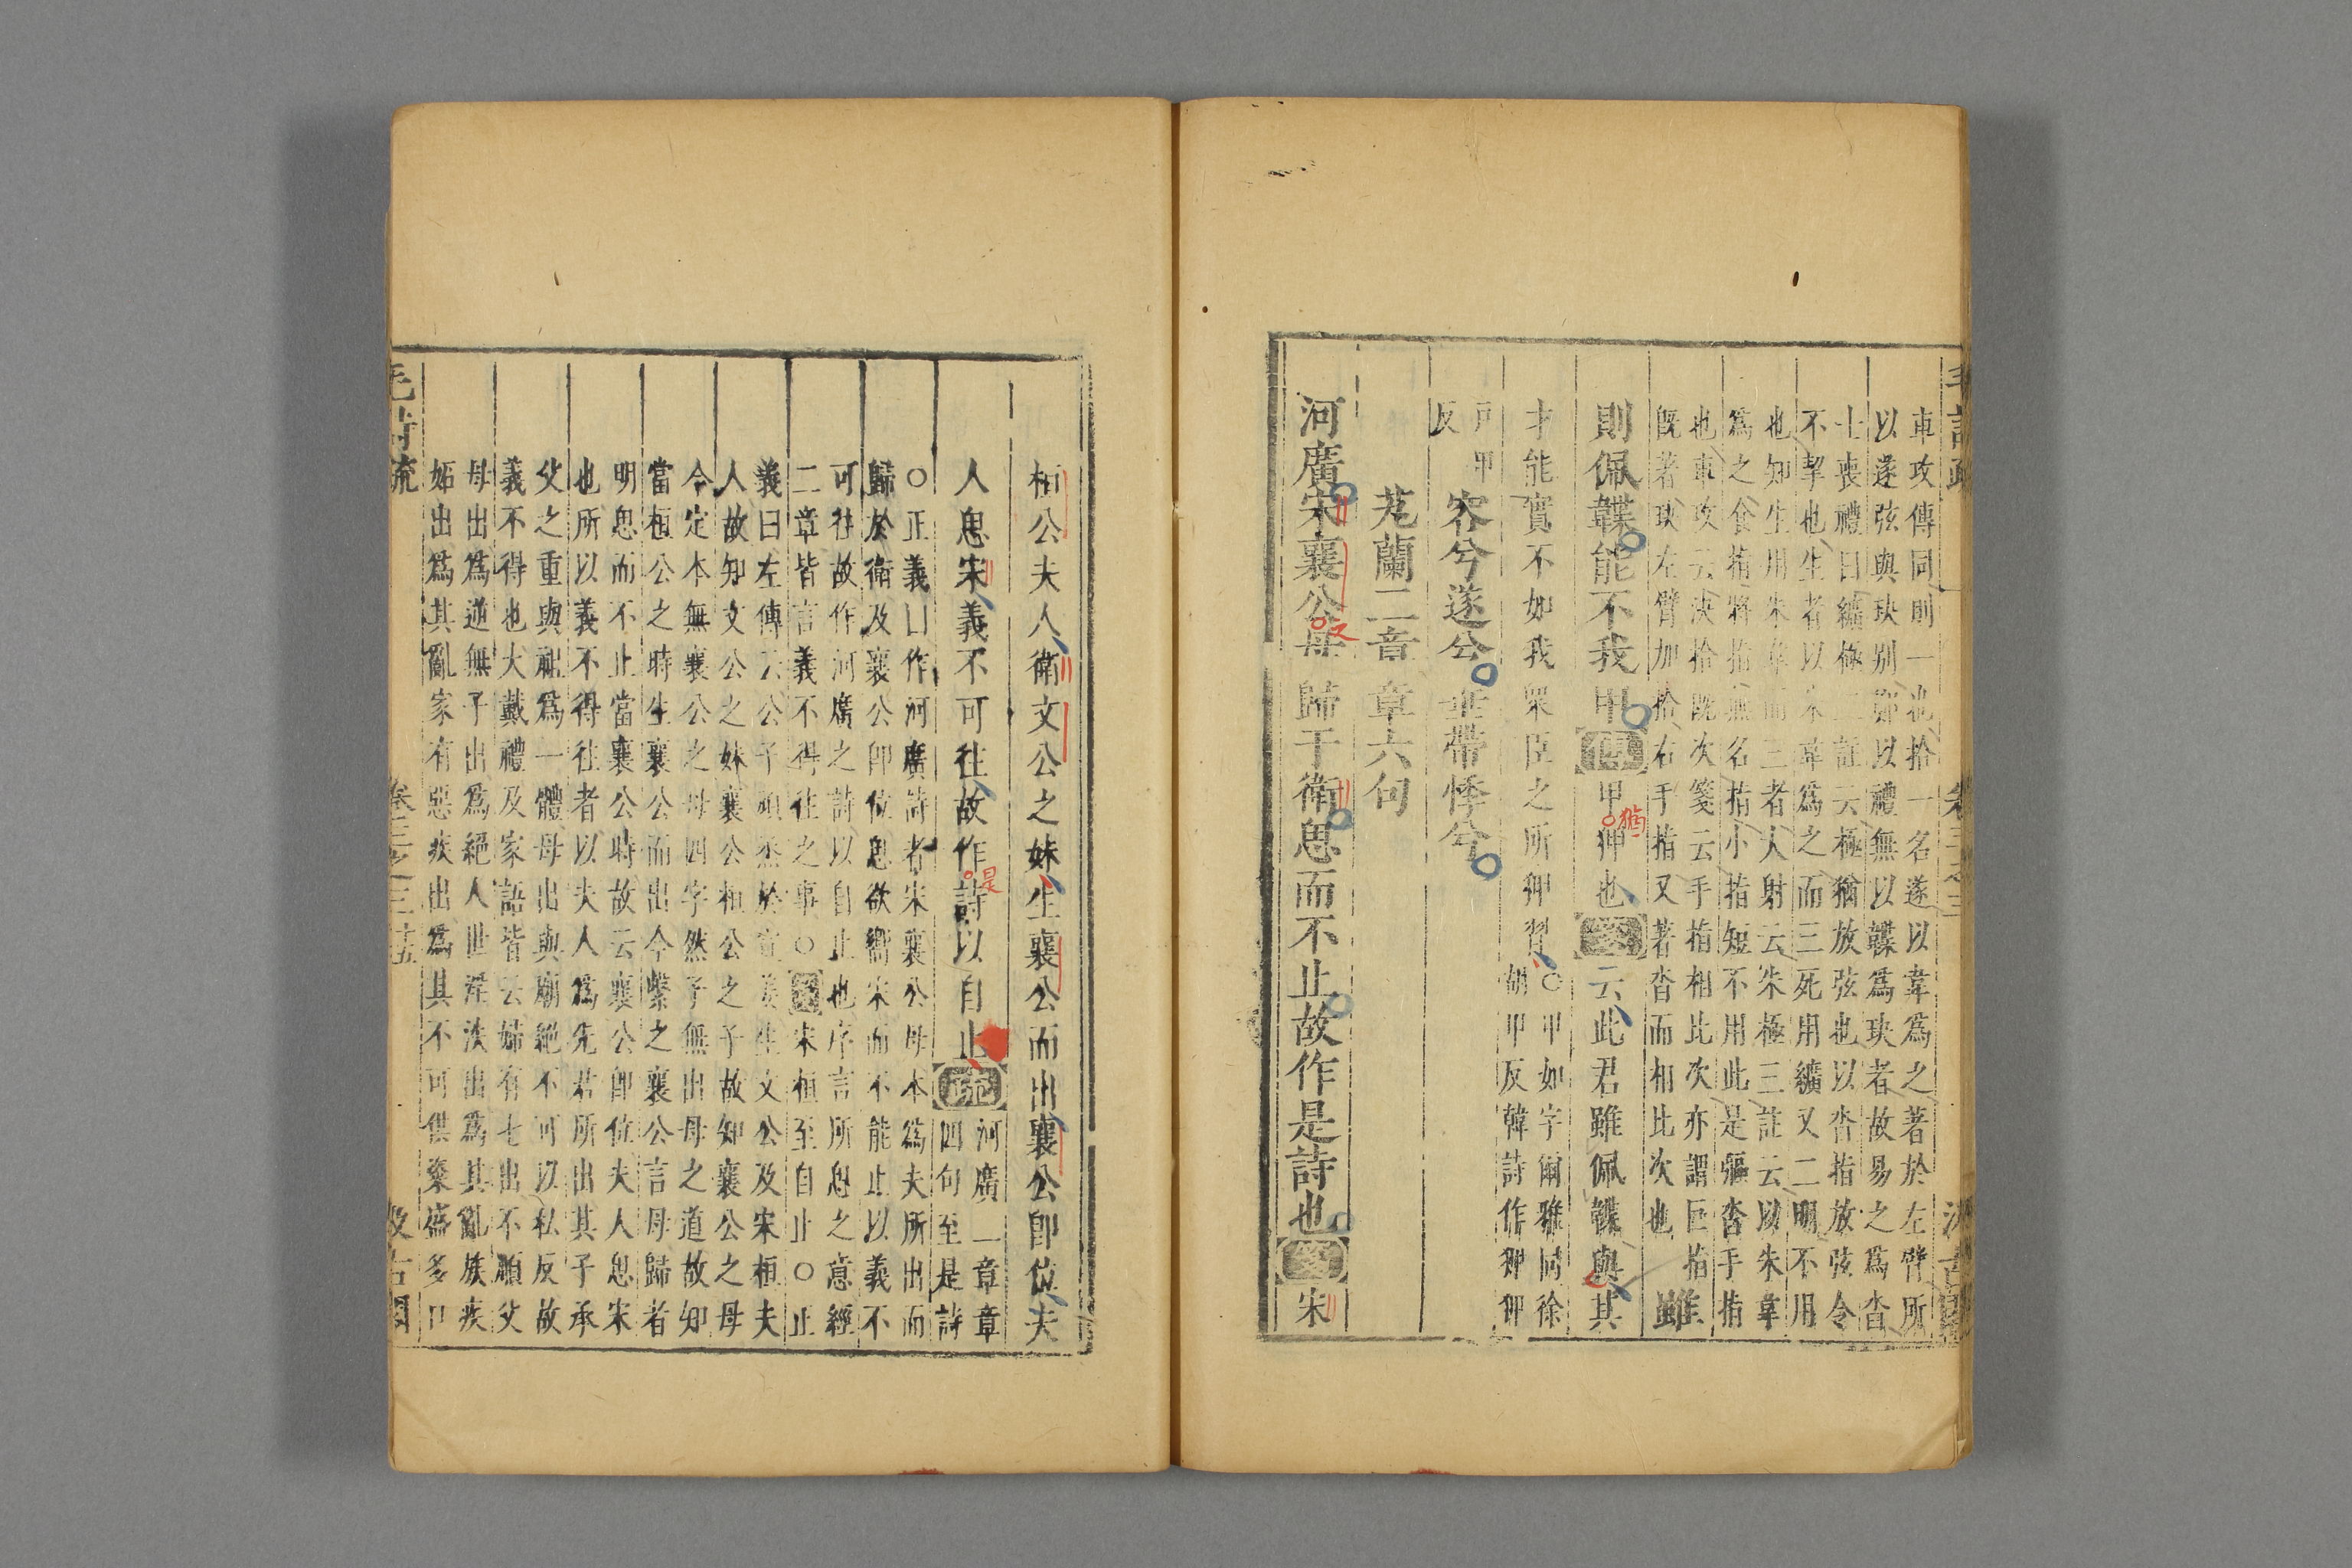 毛詩疏 卷三之三 汲古閣
車攻傳同則一也拾一名遂以韋爲之著於左臂所
以遂弦與玦别鄭以禮無以韘爲玦者故易之爲沓
士喪禮曰纊極二註云極猶放弦也以沓指放弦令
不挈也生者以朱韋爲之而三死用纊又二明不用
也知生用朱韋而三者大射云朱極三註云以朱韋
爲之食指將指無名指小指短不用此是彄沓手指
也車攻云決拾既次箋云手指相比次亦謂巨指
既著玦左臂加拾右手指又著沓而相比次也
雖則佩韘能不我甲傳甲狎也箋云此君雖佩韘與其
猶
才能實不如我眾臣之所狎習○甲如字爾雅同徐
胡甲反韓詩作狎狎
戶甲
反
容兮遂兮垂帶悸兮
芄蘭二章章六句
河廣宋襄公母歸于衛思而不止故作是詩也箋宋
桓公夫人衛文公之妹生襄公而出襄公卽位夫
人思宋義不可往故作詩以自止疏河廣二章章
是
四句至是詩
○正義曰作河廣詩者宋襄公母本爲夫所出而
歸於衛及襄公卽位思欲嚮宋而不能止以義不
可往故作河廣之詩以自止也序言所思之意經
二章皆言義不得往之事○箋宋桓至自止○正
義曰左傳云公子頑烝於宣姜生文公及宋桓夫
人故知文公之妹襄公桓公之子故知襄公之母
今定本無襄公之母四字然子無出母之道故知
當桓公之時生襄公而出今繫之襄公言母歸者
明思而不止當襄公時故云襄公卽位夫人思宋
也所以義不得往者以夫人爲先君所出其子承
父之重與祖爲一體母出與廟絕不可以私反故
義不得也大戴禮及家語皆云婦有七出不順父
母出爲逆無子出爲絕人世淫泆出爲其亂族疾
妬出爲其亂家有惡疾出爲其不可供粢盛多口
毛詩疏 卷三之三 十五 汲古閣